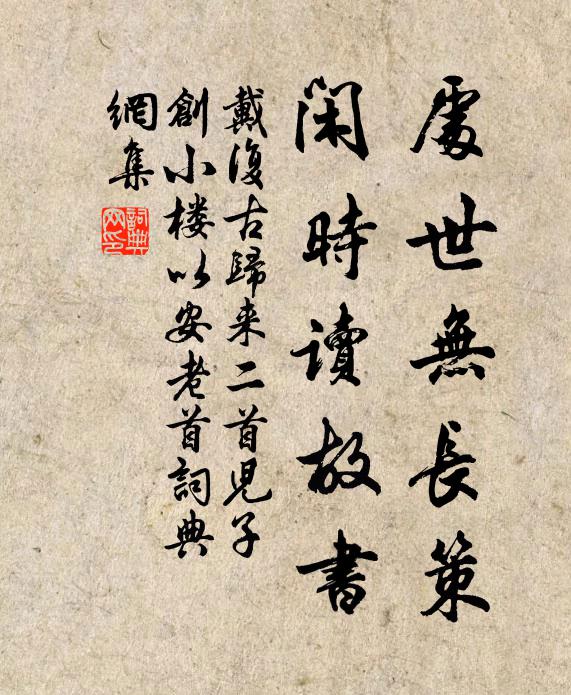 處世無長策
閑時讀故書
戴復古歸来二首兒子
創小楼以安老首詞典
網集
詞典網印